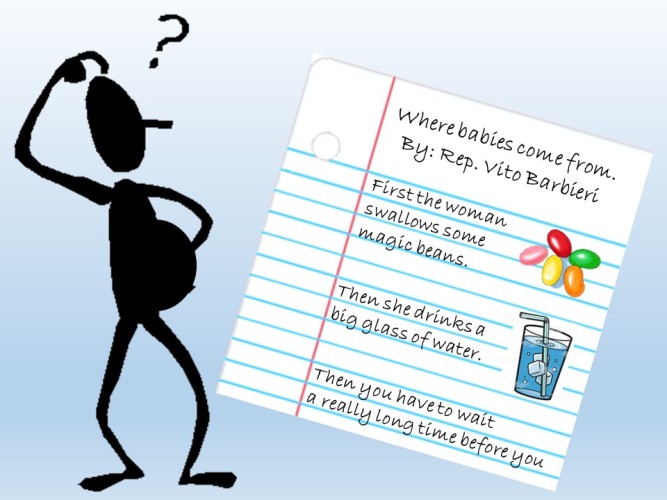 ?
Where babies come from.
By: Rep. Vito Barbieri
First the woman
swallows some
magic beans.
Then she drinks a
big glass of water.
Then you have to wait
a really long time before you